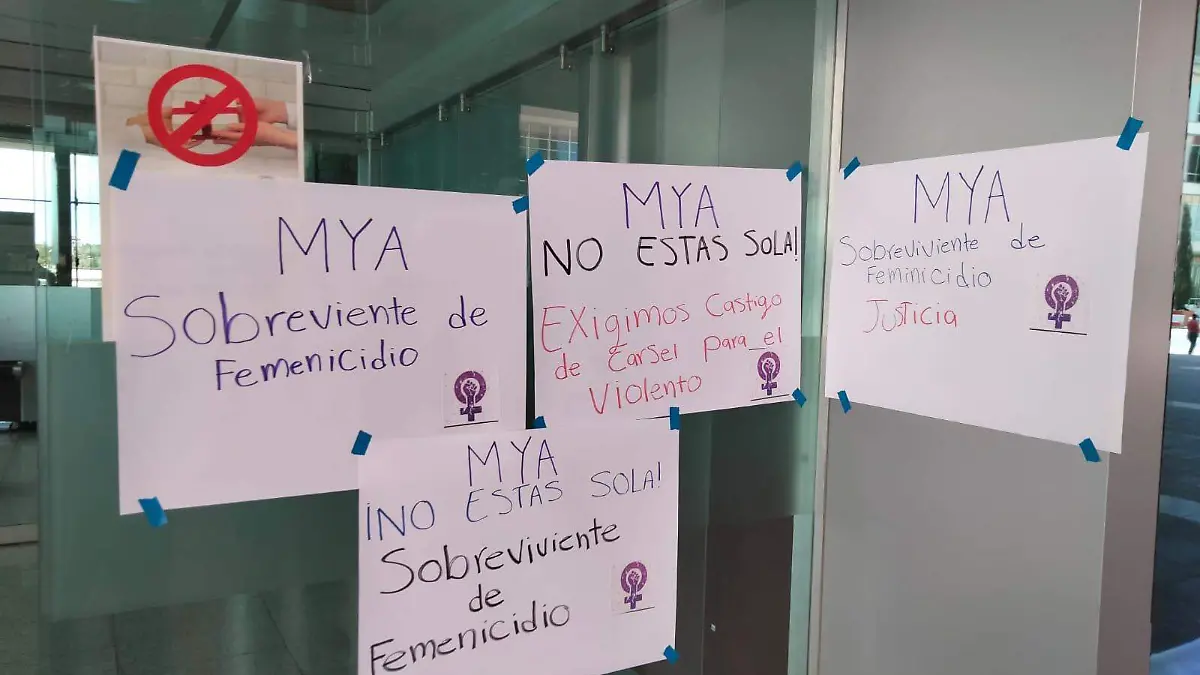 MYA
Sobreviente de
Femenicidio
MYA
NO ESTAS SOLA!
EXigimos Castigo
de Carsel para el
Violento
MYA
Sobreviviente de
Feminicidio
Justicia
MYA
¡NO ESTAS SOLA!
Sobreviviente
de
Femenicidio